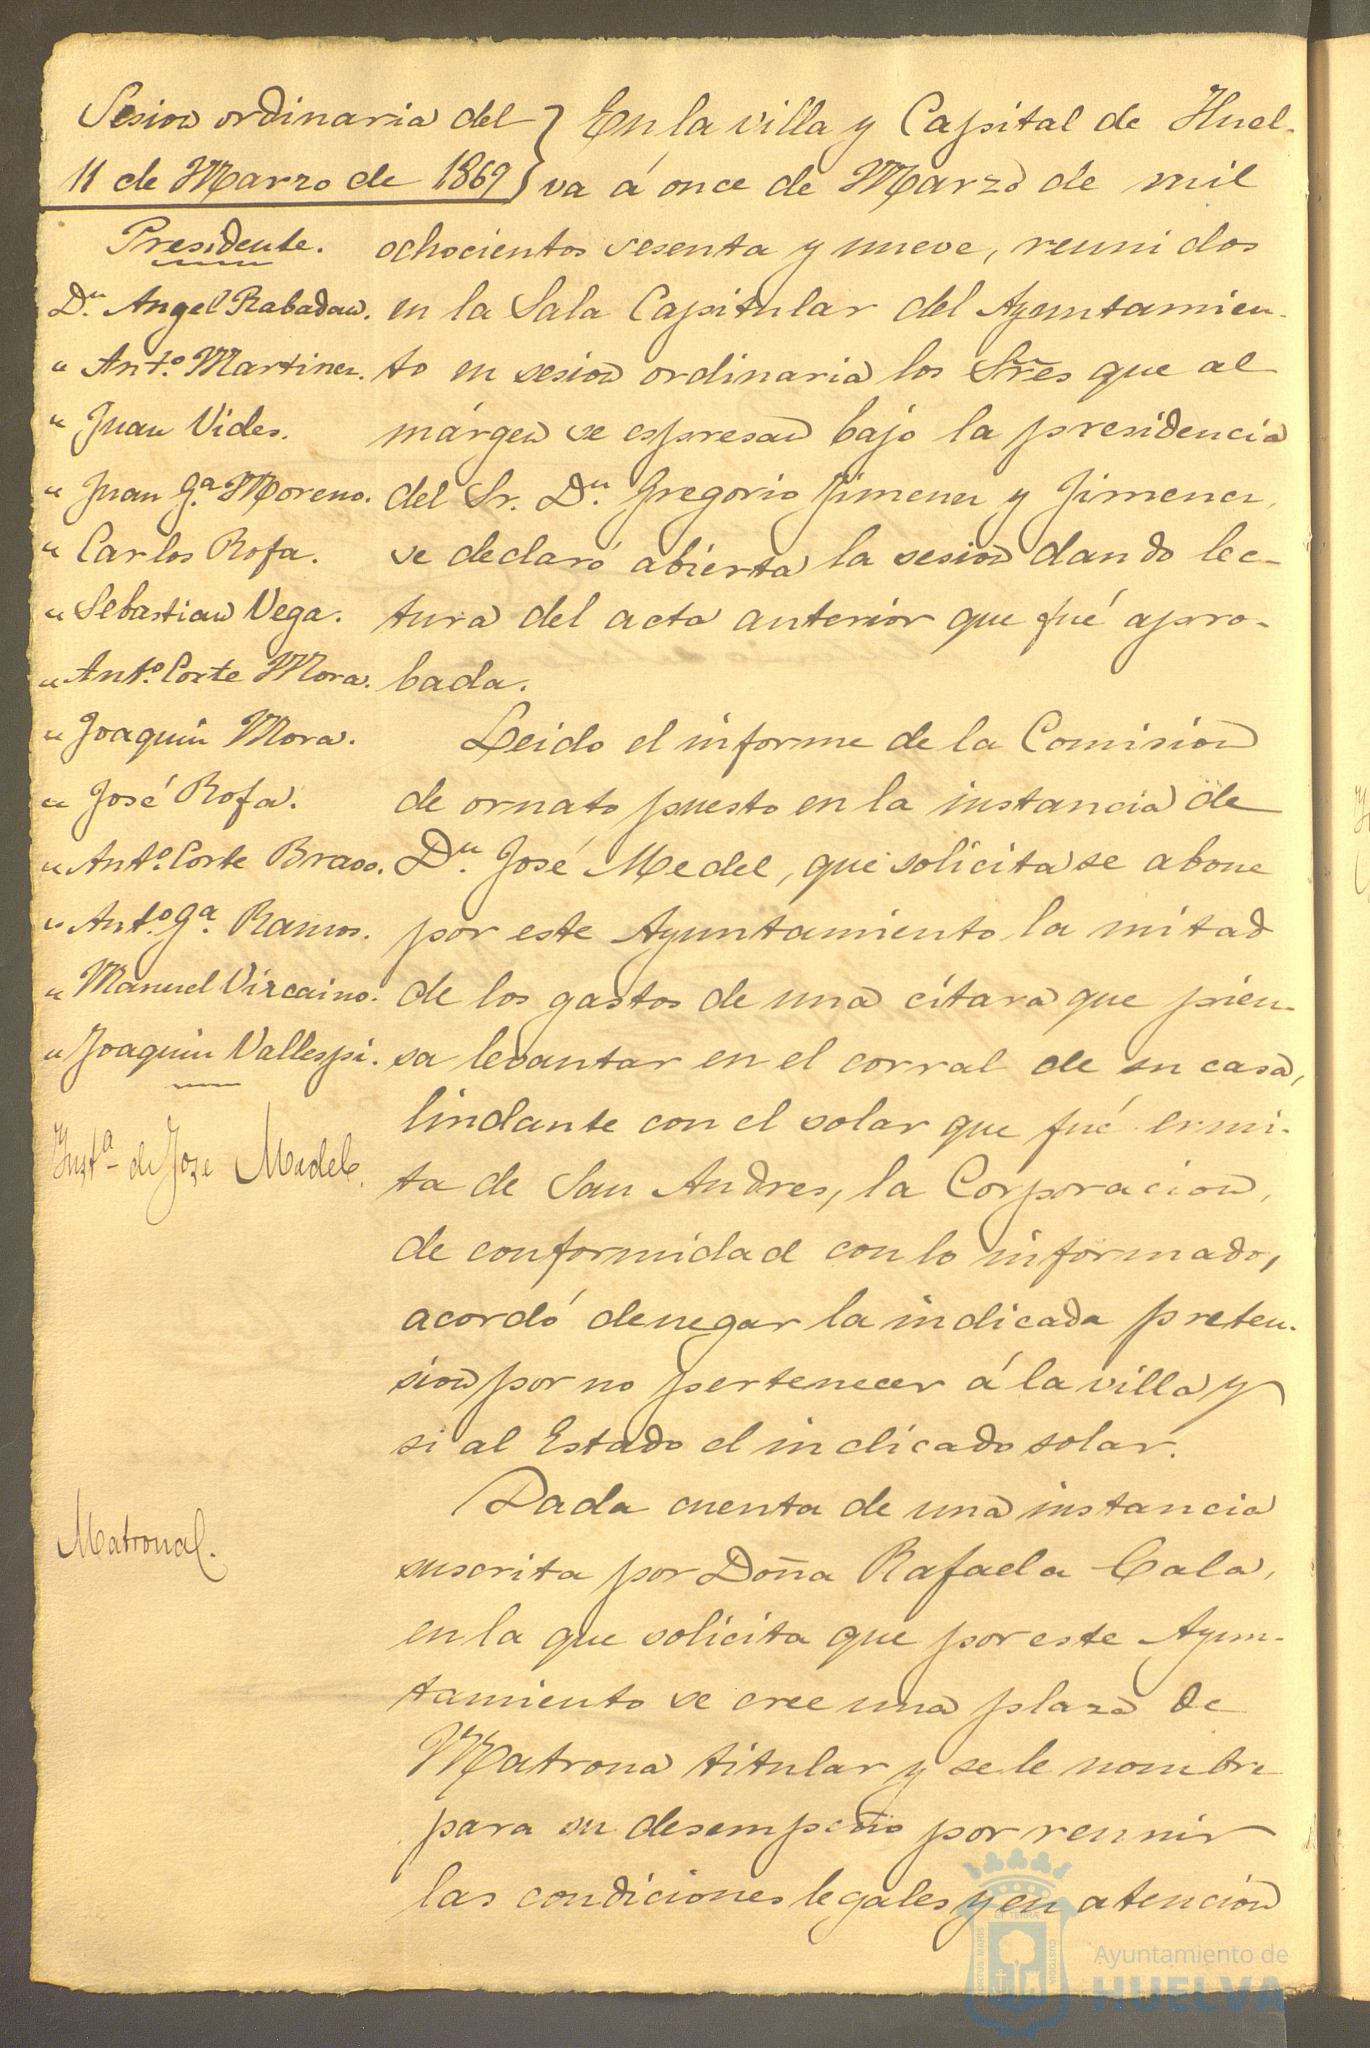 Sesion ordinaria del
11 de Marzo de 1869
Presidente.
Dn. Angel Rabadan.
" Anto. Martinez.
" Juan Vides.
" Juan Ga. Moreno.
" Carlos Rofa.
" Sebastian Vega.
" Anto. Corte Mora.
" Joaquin Mora.
" José Rofa.
" Anto. Corte Bravo.
" Anto. Ga. Ramos.
" Manuel Vizcaino.
" Joaquin Vallespi.
Insta. de Jose Medel.
Matronal.
En la villa y Capital de Huel-
va á once de Marzo de mil
ochocientos sesenta y nueve, reunidos
en la Sala Capitular del Ayuntamien-
to en sesion ordinaria los Sres que al
márgen se espresan bajo la presidencia
del Sr. Dn. Gregorio Jimenez y Jimenez,
se declaró abierta la sesion dando lec-
tura del acta anterior que fué apro-
bada.
Leido el informe de la Comision
de ornato puesto en la instancia de
Dn. José Medel, que solicita se abone
por este Ayuntamiento la mitad
de los gastos de una cítara que pien-
sa levantar en el corral de su casa,
lindante con el solar que fué ermi-
ta de San Andres, la Corporacion,
de conformidad con lo informado,
acordó denegar la indicada preten-
sion por no pertenecer á la villa y
si al Estado el indicado solar.
Dada cuenta de una instancia
suscrita por Doña Rafaela Cala,
en la que solicita que por este Ayun-
tamiento se cree una plaza de
Matrona titular y se le nombre
para su desempeño por reunir
las condiciones legales y en atención
Ayuntamiento de
HUELVA